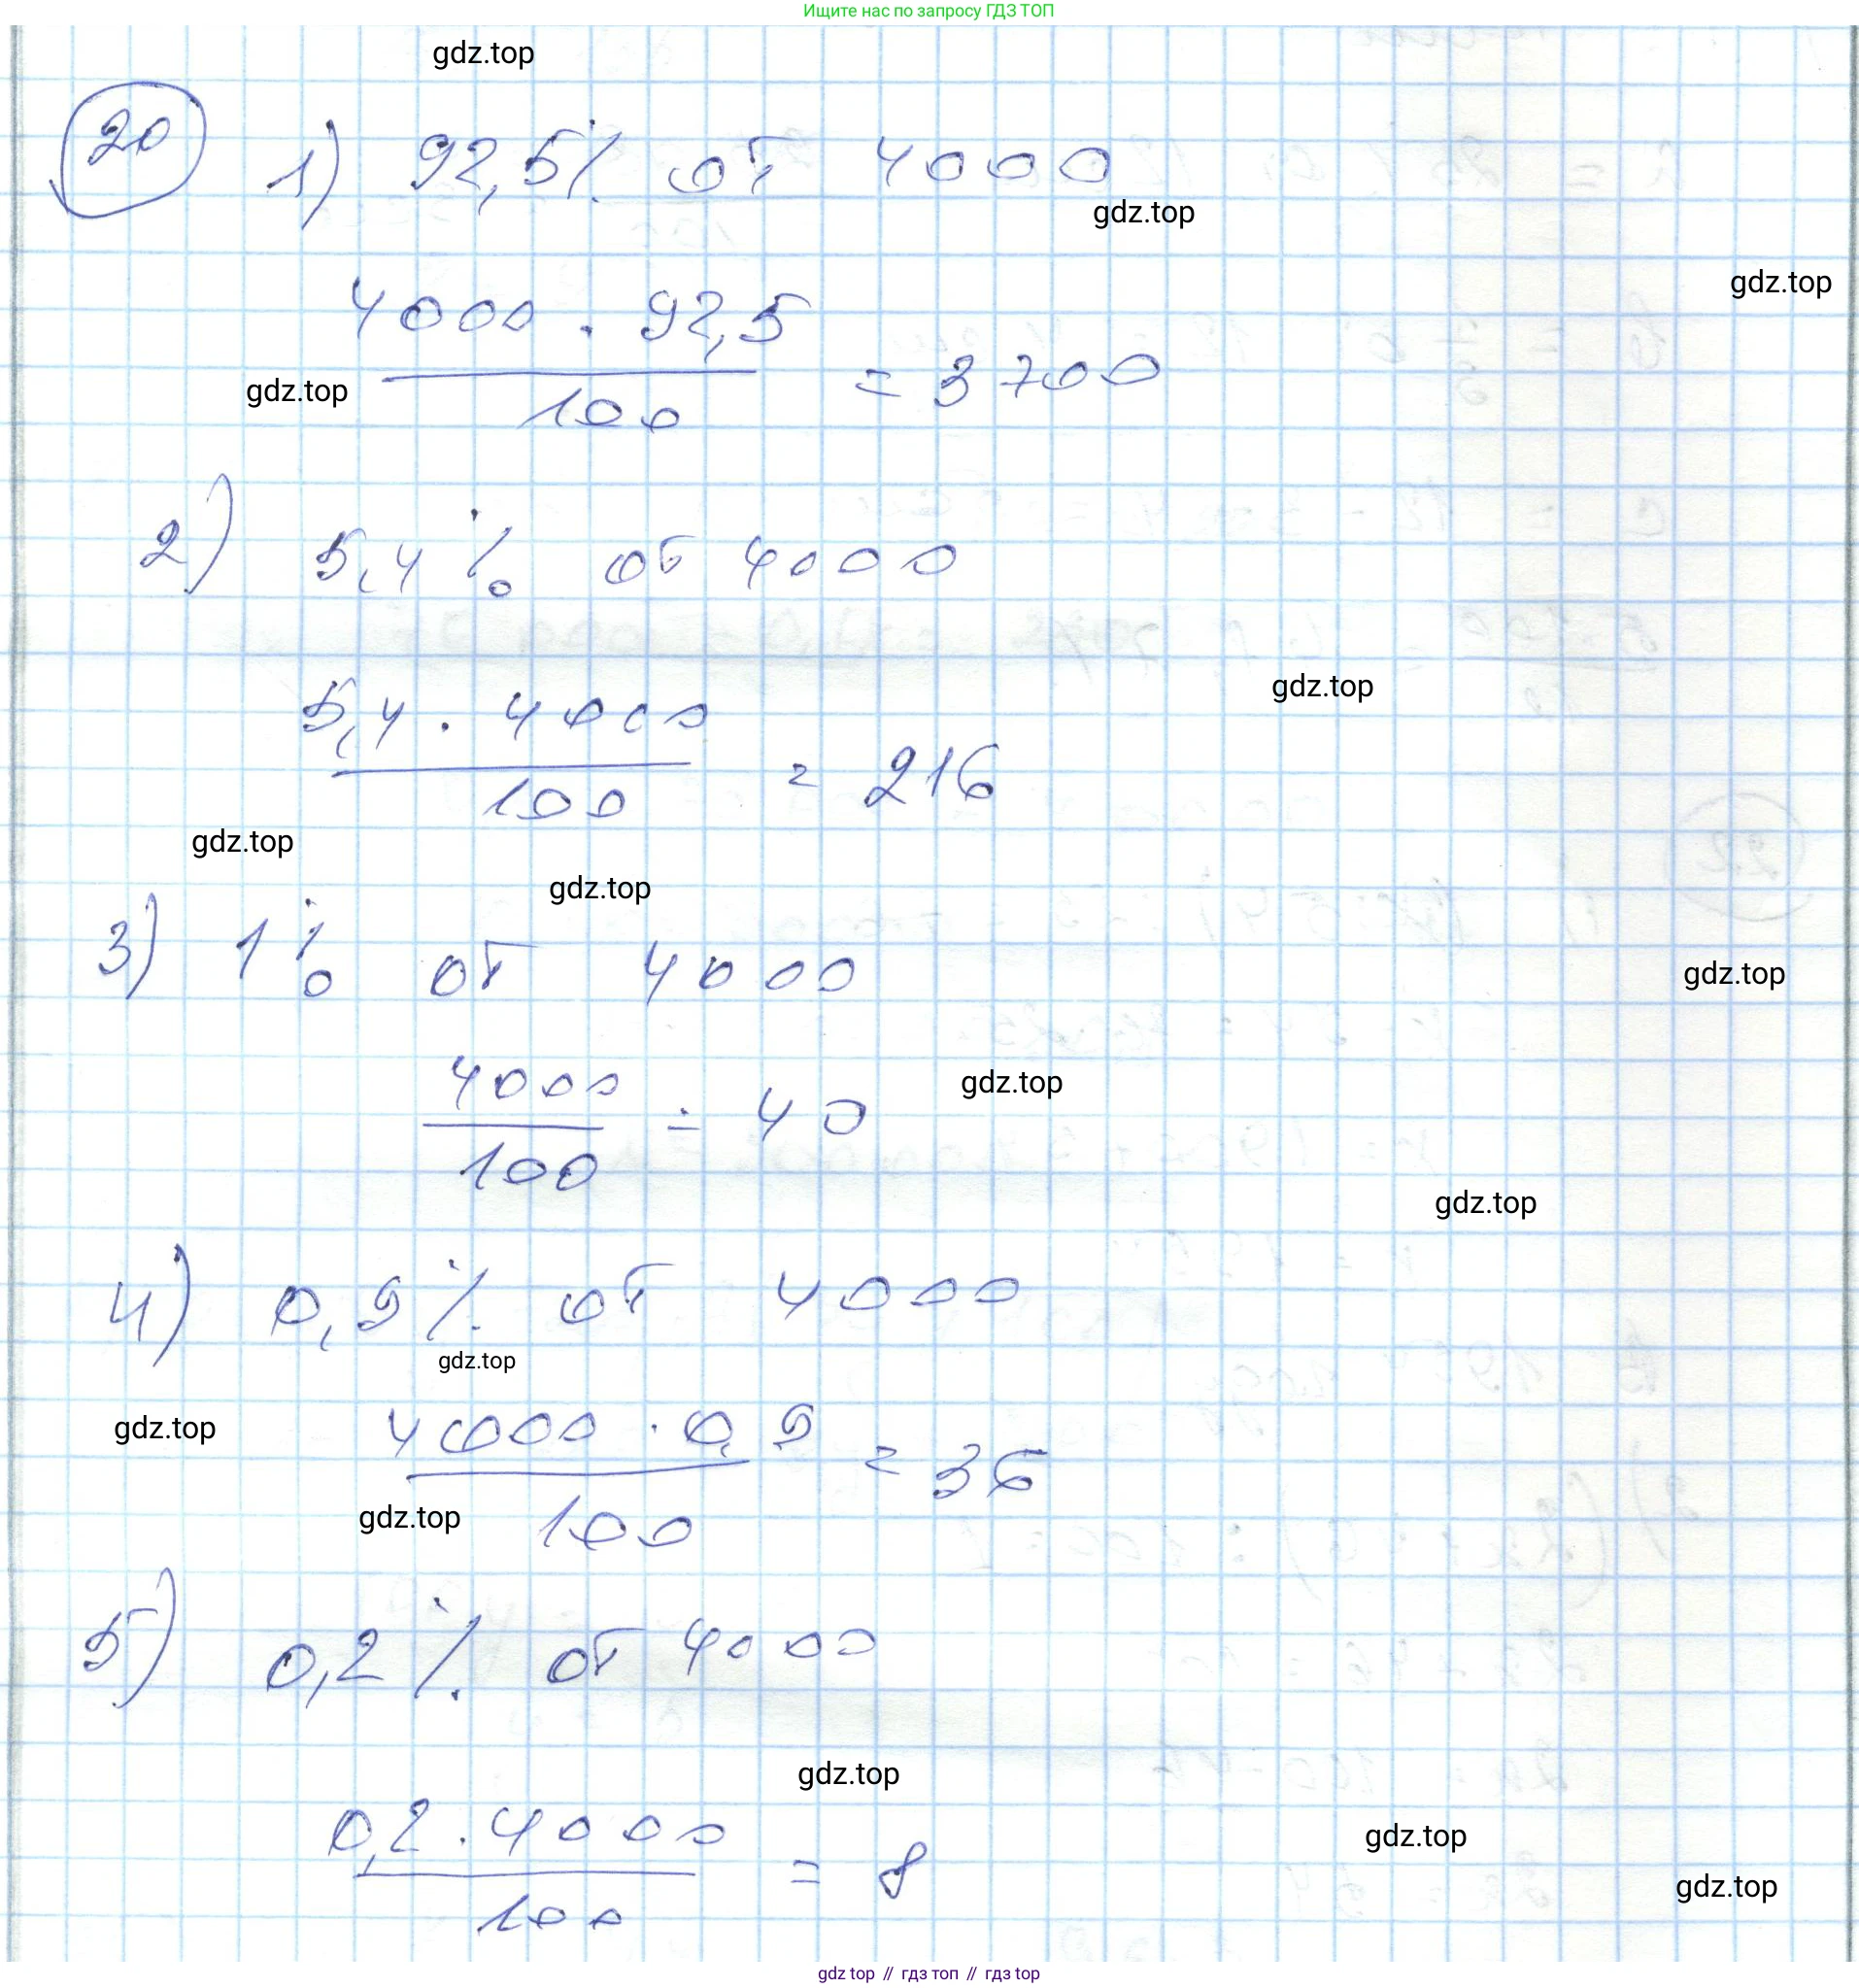 Ищите нас по запросу ГДЗ ТОП
gdz.top
20 1) 92,5% от 4000
gdz.top
gdz.top
4000 · 92,5
gdz.top
100
= 3700
2) 5,4% от 4000
gdz.top
5,4 · 4000
100
= 216
gdz.top
gdz.top
3) 1% от 4000
gdz.top
4000
100
= 40
gdz.top
gdz.top
4) 0,9% от 4000
gdz.top
gdz.top
4000 · 0,9
100
= 36
gdz.top
5) 0,2% от 4000
gdz.top
0,2 · 4000
100
= 8
gdz.top
gdz.top
gdz top // гдз топ // гдз top